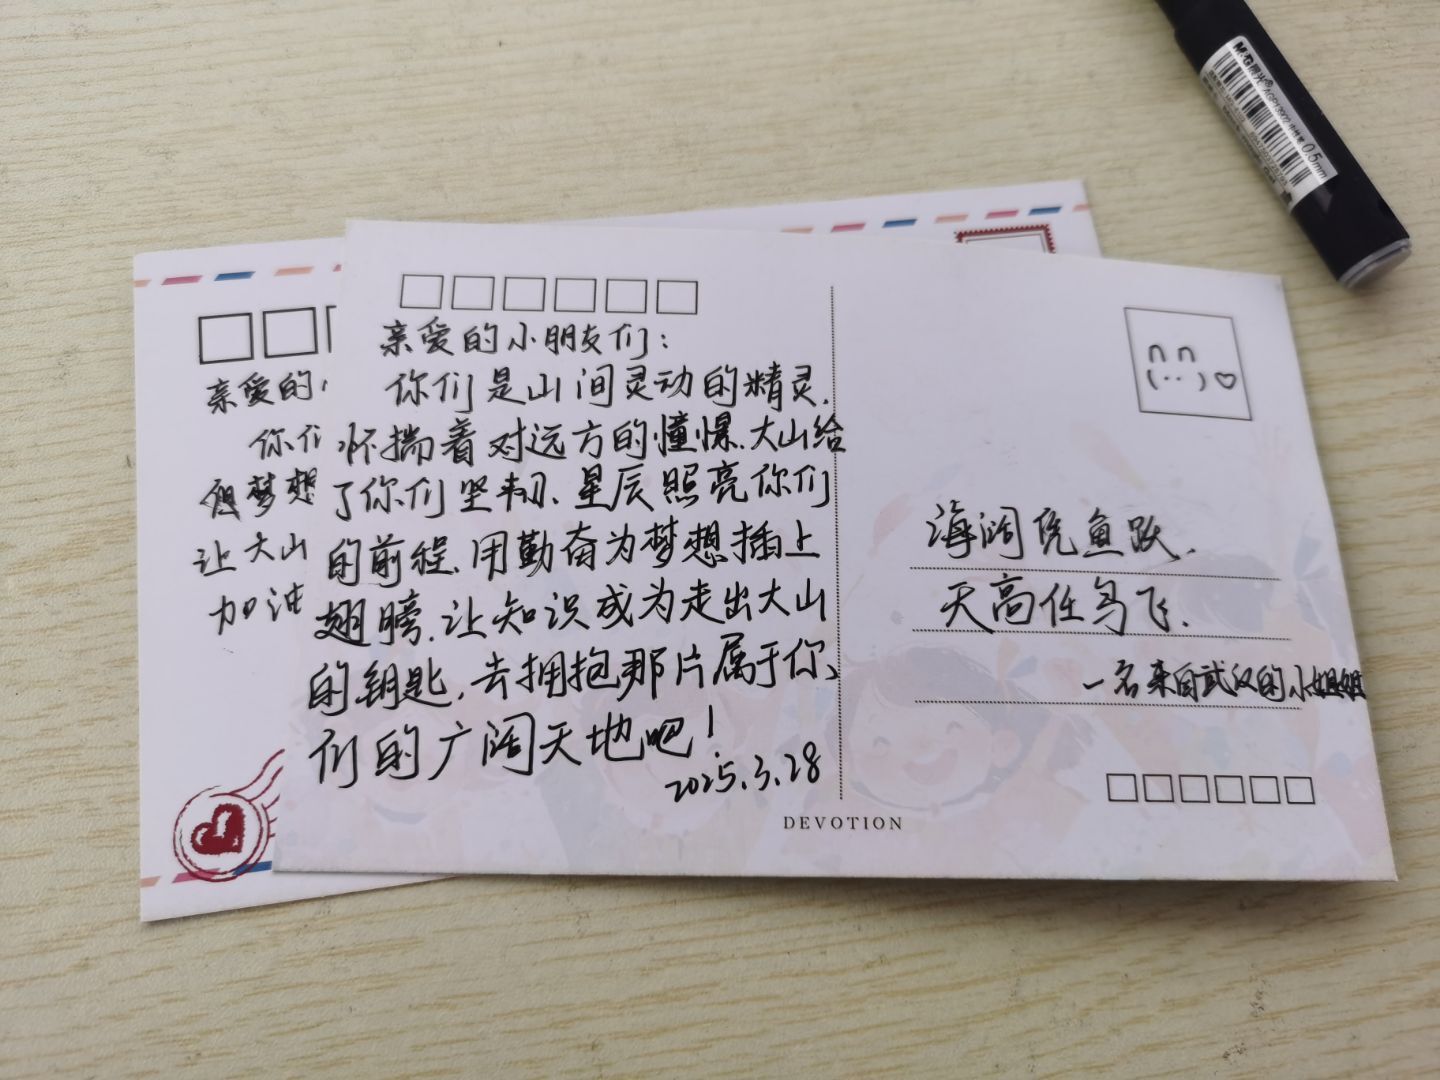 亲爱的小朋友们：
你们是山间灵动的精灵，
怀揣着对远方的憧憬，大山给
了你们坚韧，星辰照亮你们
的前程，用勤奋为梦想插上
翅膀，让知识成为走出大山
的钥匙，去拥抱那片属于你
们的广阔天地吧！
2025.3.28
海阔凭鱼跃，
天高任鸟飞，
一名来自武汉的小姐姐
DEVOTION
亲爱的
你们
梦想
让大山
加油
M&G晨光
AGP13902 中性笔 0.5mm